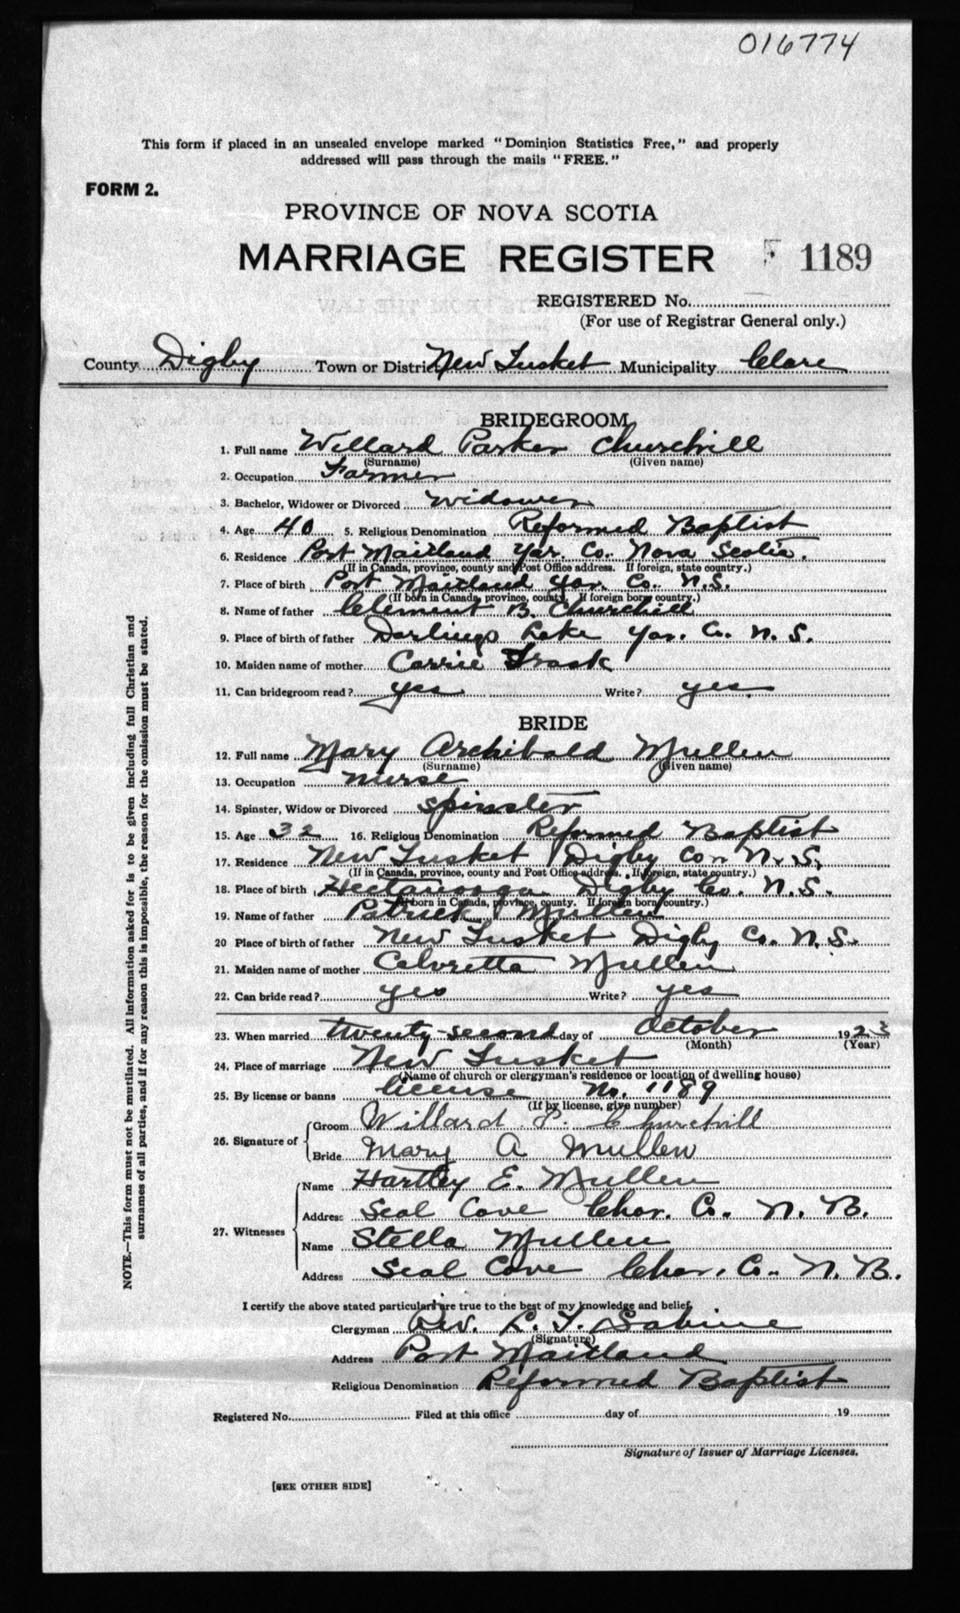 016774
This form if placed in an unsealed envelope marked "Dominion Statistics Free," and properly
addressed will pass through the mails "FREE."
FORM 2.
PROVINCE OF NOVA SCOTIA
MARRIAGE REGISTER 1189
REGISTERED No.
(For use of Registrar General only.)
County Digby Town or District New Tusket Municipality Clare
BRIDEGROOM
1. Full name Willard Parker Churchill
(Surname) (Given name)
2. Occupation Farmer
3. Bachelor, Widower or Divorced widower
4. Age 40 5. Religious Denomination Reformed Baptist
6. Residence Port Maitland Yar. Co. Nova Scotia.
(If in Canada, province, county and Post Office address. If foreign, state country.)
7. Place of birth Port Maitland Yar. Co. N.S.
(If born in Canada, province, county. If foreign born country.)
8. Name of father Clement B. Churchill
9. Place of birth of father Darlings Lake Yar. Co. N. S.
10. Maiden name of mother Carrie Trask
11. Can bridegroom read? yes Write? yes.
BRIDE
12. Full name Mary Archibald Mullen
(Surname) (Given name)
13. Occupation nurse
14. Spinster, Widow or Divorced spinster
15. Age 32 16. Religious Denomination Reformed Baptist
17. Residence New Tusket Digby Co. N. S.
(If in Canada, province, county and Post Office address. If foreign, state country.)
18. Place of birth Hectanooga Digby Co. N.S.
(If born in Canada, province, county. If foreign born country.)
19. Name of father Patrick Mullen
20 Place of birth of father New Tusket Digby Co. N.S.
21. Maiden name of mother Calvretta Mullen
22. Can bride read? yes Write? yes
23. When married twenty-second day of October 1923
(Month) (Year)
24. Place of marriage New Tusket
(Name of church or clergyman's residence or location of dwelling house)
25. By license or banns license No. 1189
(If by license, give number)
26. Signature of Groom Willard P. Churchill
Bride Mary A Mullen
27. Witnesses Name Hartley E. Mullen
Address Seal Cove Char. Co. N. B.
Name Stella Mullen
Address Seal Cove Char. Co. N. B.
I certify the above stated particulars are true to the best of my knowledge and belief,
Clergyman Rev. L. T. Sabine
(Signature)
Address Port Maitland
Religious Denomination Reformed Baptist
Registered No. Filed at this office day of 19
Signature of Issuer of Marriage Licenses.
[SEE OTHER SIDE]
NOTE.—This form must not be mutilated. All information asked for is to be given including full Christian and
surnames of all parties, and if for any reason this is impossible, the reason for the omission must be stated.